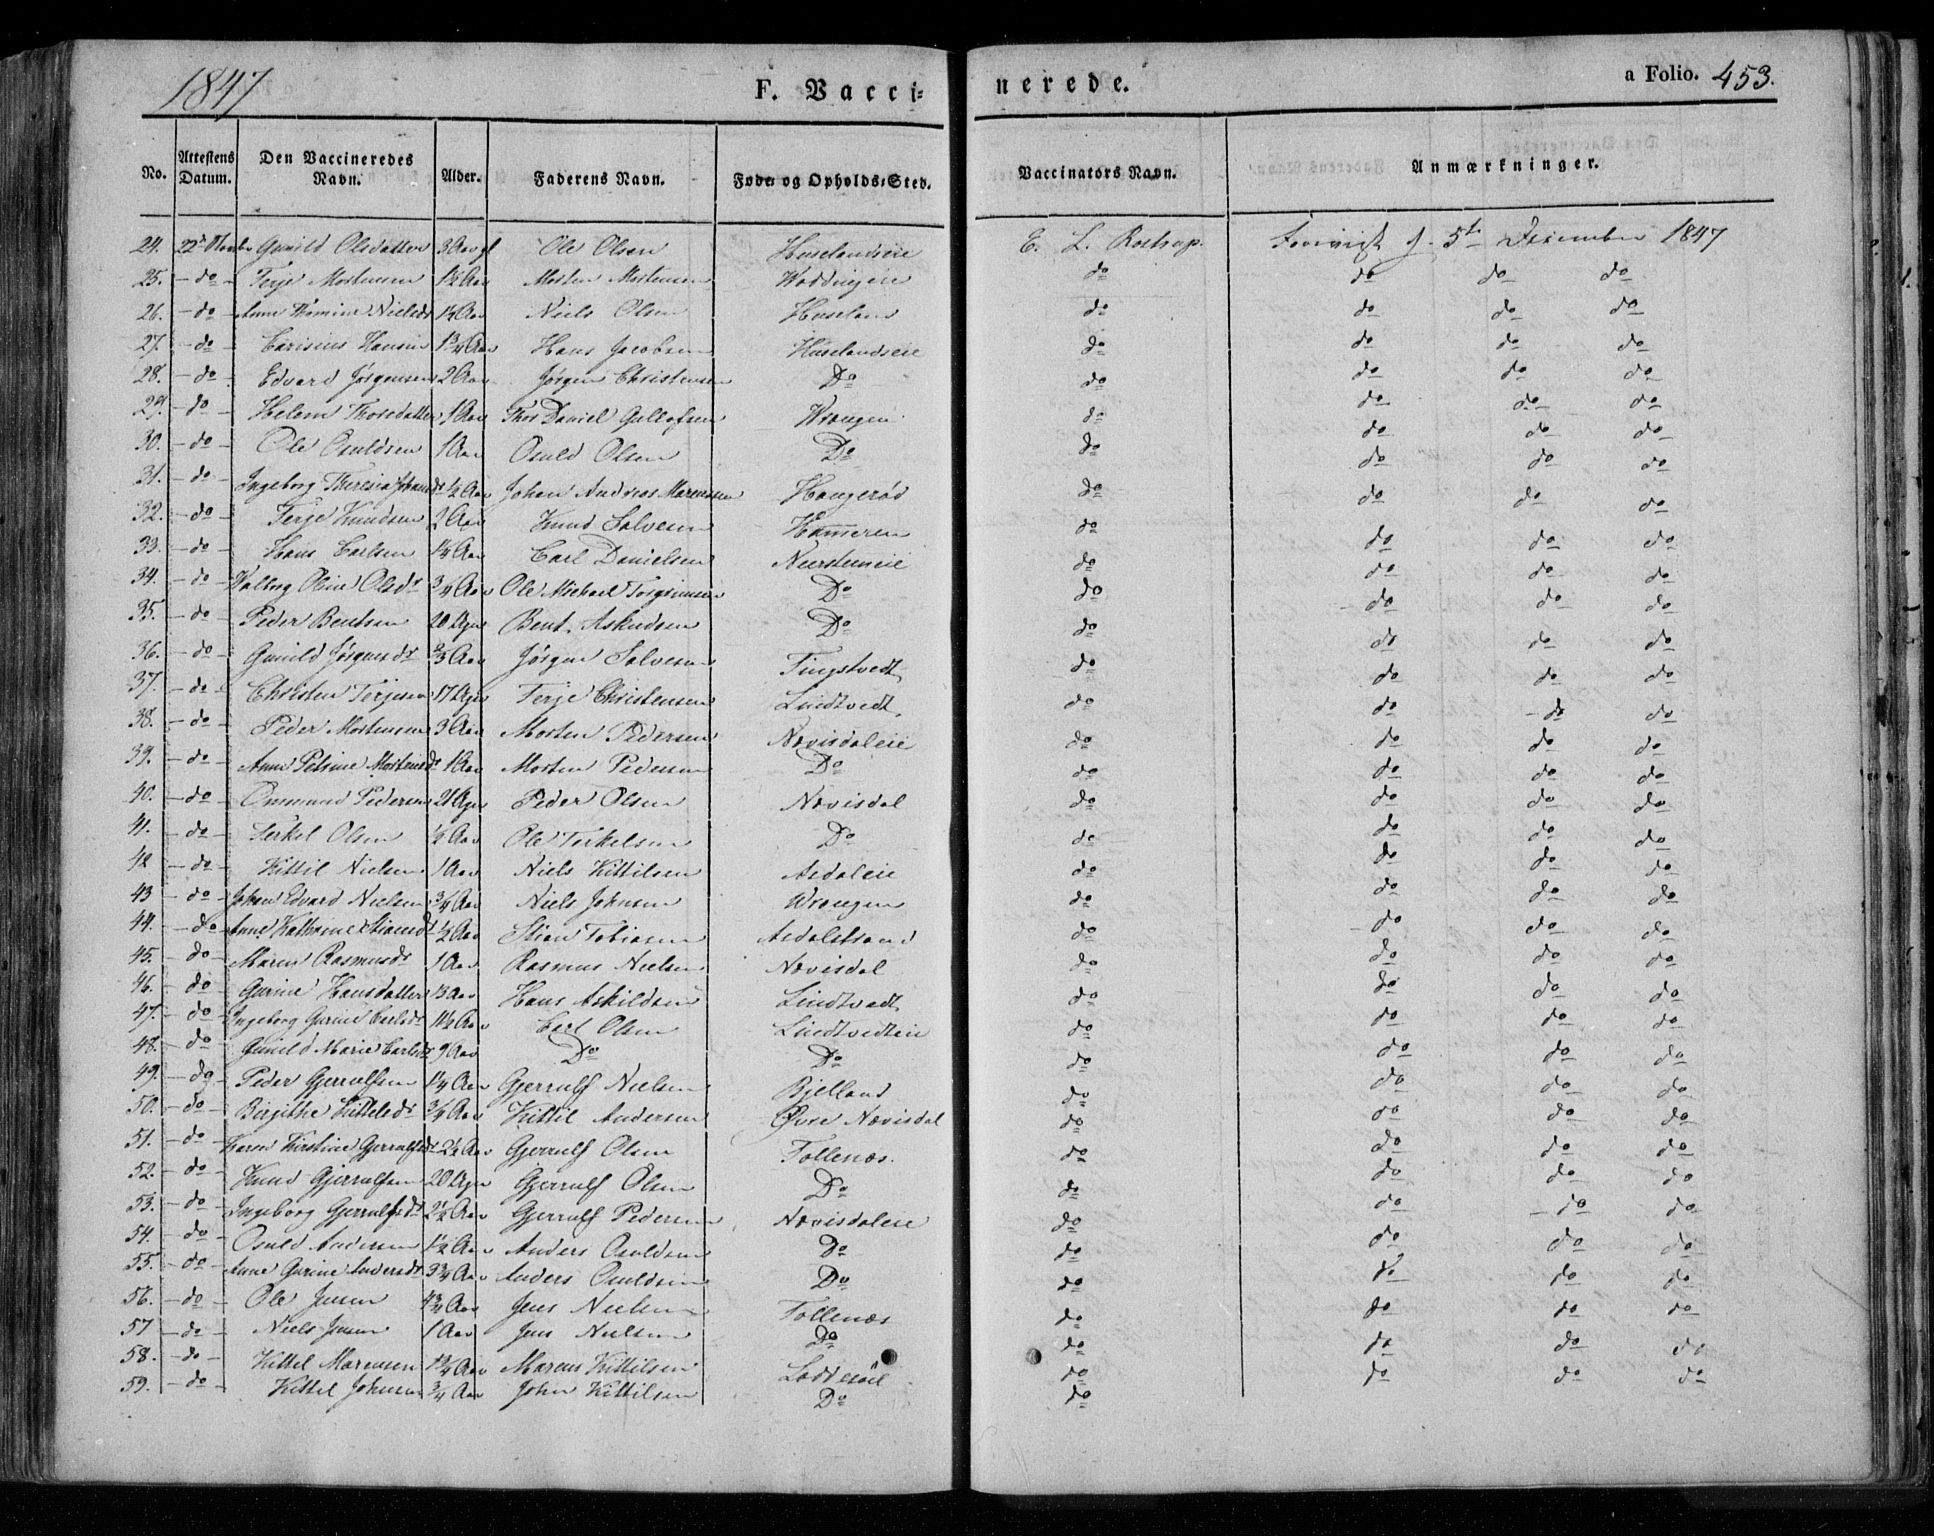 1847 F. Vacci= nerede. a Folio. 453.
No. Attestens Datum. Den Vaccineredes Navn. Alder. Faderens Navn. Føde og Opholds-Sted. Vaccinators Navn. Anmærkninger.
24. 22d Gunild Olsdatter 3 Aar Ole Olsen Huselandseie E. L. Rostrup. 5te December 1847
25. do Terje Mortensen 1½ Aar Morten Mortensen do do do do
26. do Anne Thomine Nielsdr 1¼ Aar Niels Olsen Huseland do do do do
27. do Carinius Hansen 1¾ Aar Hans Jacobsen Huselandseie do do do do
28. do Edvard Jørgensen 2 Aar Jørgen Christensen Do do do do do
29. do Helene Thorsdatter 1 Aar Thor Daniel Gullofsen Wrangen do do do do
30. do Ole Osuldsen 1 Aar Osuld Olsen Do do do do do
31. do Ingeborg Theresia ½ Aar Johan Andreas Marcussen Haugerød do do do do
32. do Terje Knudsen 2 Aar Knud Salvesen Hammeren do do do do
33. do Hans Carlsen 1¼ Aar Carl Danielsen Neersteneie do do do do
34. do Walborg Oline Olsdr ¾ Aar Ole Michael Torgrimsen Do do do do do
35. do Peder Bentsen 20 Uger Bent Askildsen Do do do do do
36. do Gunild Jørgensdr ⅔ Aar Jørgen Salvesen Tingstvedt do do do do
37. do Christen Terjesen 17 Uger Terje Christensen Lindtvedt do do do do
38. do Peder Mortensen 3 Aar Morten Pedersen Nævisdaleie do do do do
39. do Anne Petrine Mortensdr 1 Aar Morten Pedersen Do do do do do
40. do Ommund Pedersen 21 Uger Peder Olsen Nævisdal do do do do
41. do Terkel Olsen ½ Aar Ole Terkelsen Do do do do do
42 do Kittil Nielsen 1 Aar Niels Kittilsen Asdaleie do do do do
43 do Johan Edvard Nielsen ¾ Aar Niels Johnsen Wrangen do do do do
44. do Anne Kathrine Stiansdr ½ Aar Stian Tobiasen Asdalstrand do do do do
45. do Maren Rasmusdr 1 Aar Rasmus Nielsen Nævisdal do do do do
46. do Gurine Hansdatter 13 Aar Hans Askildsen Lindtvedt do do do do
47. do Ingeborg Gurine Carlsdr 11½ Aar Carl Olsen Lindtvedteie do do do do
48. do Gunild Marie Carlsdr 9 Aar Do Do do do do do
49. do Peder Gjerrulfsen 1¼ Aar Gjerrulf Nielsen Bjelland do do do do
50. do Birgithe Kittelsdr ¾ Aar Kittil Andersen Øvre Nævisdal do do do do
51. do Karen Kirstine Gjerrulfsdr 2½ Aar Gjerrulf Olsen Follenæs. do do do do
52. do Knud Gjerrulfsen 20 Uger Gjerrulf Olsen Do do do do do
53. do Ingeborg Gjerrulfsdr 2½ Aar Gjerrulf Pedersen Nævisdaleie do do do do
54. do Osuld Andersen 1½ Aar Anders Osuldsen Do do do do do
55. do Anne Gurine Andersdr 3¾ Aar Anders Osuldsen Do do do do do
56. do Ole Jensen 4¾ Aar Jens Nielsen Follenæs do do do do
57 do Niels Jensen 1 Aar Jens Nielsen Do do do do do
58. do Kittel Marcusen 1¾ Aar Marcus Kittilsen do do do do
59. do Kittil Johnsen ¾ Aar John Kittilsen Do do